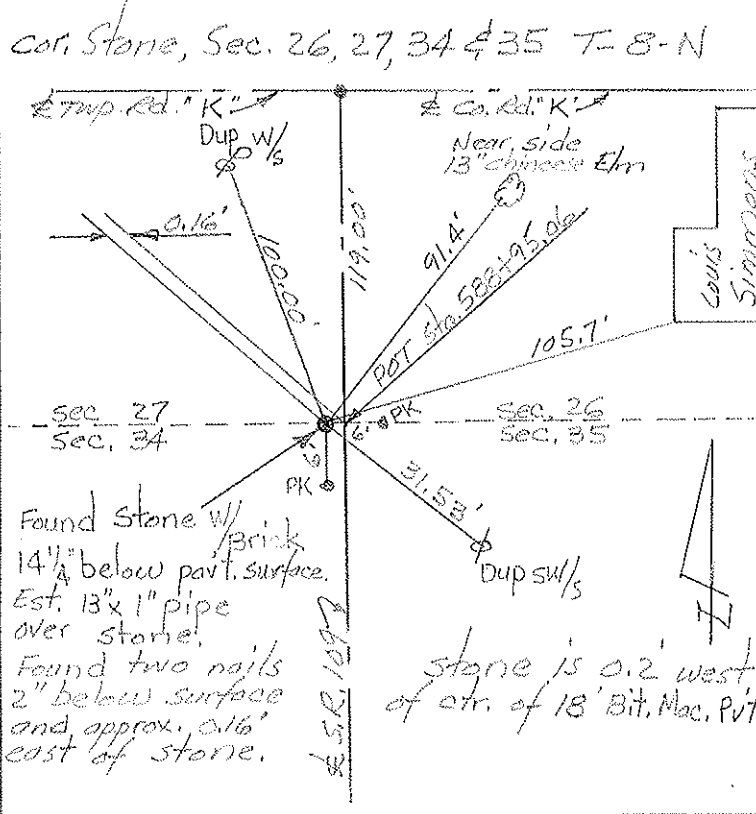 cor. Stone, Sec. 26, 27, 34 & 35 T-8-N
℄ Twp. Rd. "K"
℄ Co. Rd. "K"
Dup W/s
Near side
13" chineese Elm
0.16'
100.00'
119.00'
91.4'
POT sta. 588+95.06
Louis
Simmens
105.7'
sec 27
Sec. 34
Sec. 26
Sec. 35
6'
6'
PK
PK
31.53'
Dup SW/s
Found Stone W/
Brick
14 1/4" below pav't. surface.
Est. 13" x 1" pipe
over stone.
Found two nails
2" below surface
and approx. 0.16'
east of stone.
℄ S.R. 109
stone is 0.2' west
of ctr. of 18' Bit. Mac. Pvt